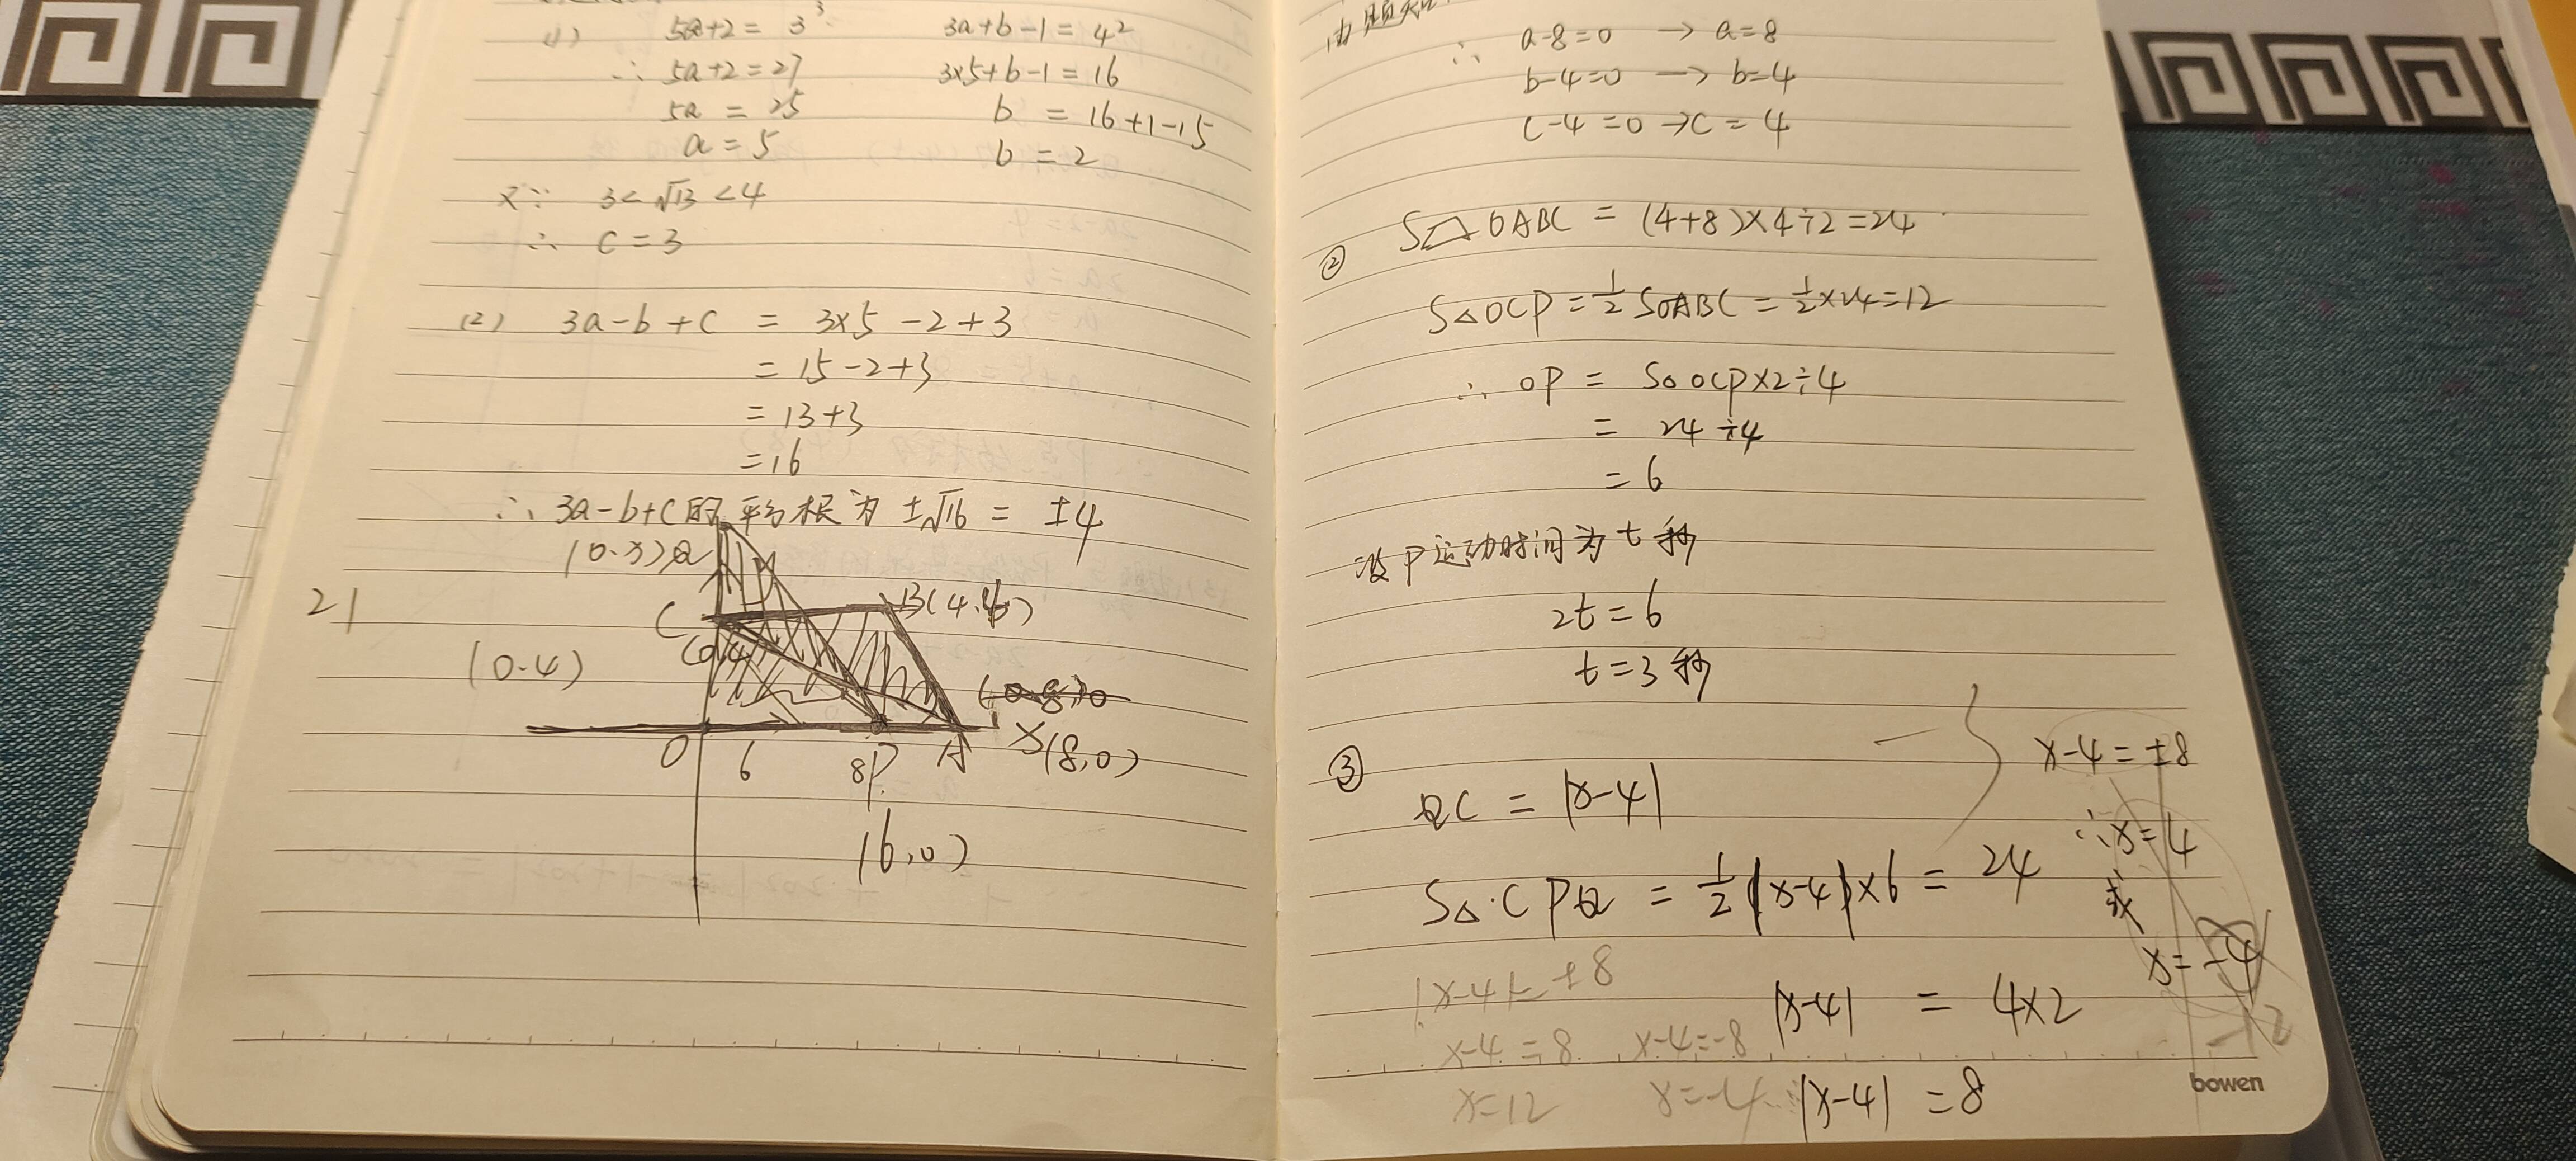 (1) 5a+2 = 3³ 3a+b-1 = 4²
∴ 5a+2=27 3×5+b-1 = 16
5a = 25 b = 16+1-15
a = 5 b = 2
又∵ 3<√13<4
∴ c=3
(2) 3a-b+c = 3×5-2+3
= 15-2+3
= 13+3
=16
∴ 3a-b+c的平方根为±√16 = ±4
21
(0.x)Q
C
B(4.4)
(0.4)
(0.4
O 6 8P A x(8,0)
(6,0)
由题知
∴ a-8=0 → a=8
b-4=0 → b=4
c-4=0 → c=4
② S OABC = (4+8)×4÷2=24
S△OCP = 1/2 SOABC = 1/2×24=12
∴ OP = S△OCP×2÷4
= 24÷4
= 6
设P运动时间为t秒
2t=6
t=3秒
③ QC = |x-4|
S△CPQ = 1/2|x-4|×6 = 24
|x-4| = 4×2
|x-4| = 8
|x-4|=±8
x-4=8 x-4=-8
x=12 x=-4
x-4=±8
∴x=4
或
x=
bowen